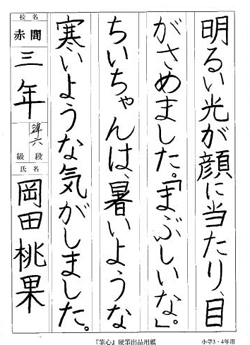 明るい光が顔に当たり、目
がさめました。「まぶしいな。」
ちいちゃんは、暑いような
寒いような気がしました。
校名
赤間
三年
準六
級段
氏名
岡田桃果
『筆心』硬筆出品用紙
小学3・4年用